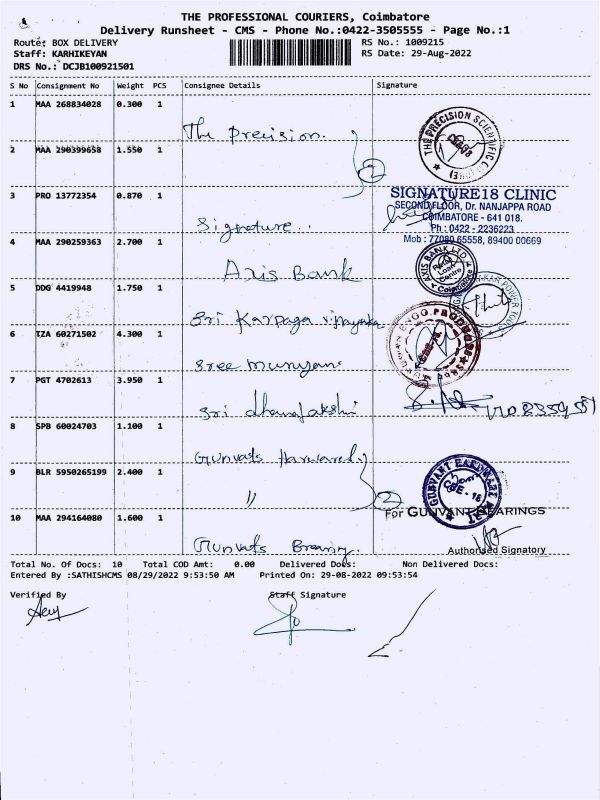 THE PROFESSIONAL COURIERS, Coimbatore
Delivery Runsheet - CMS - Phone No.:0422-3505555 - Page No.:1
Route: BOX DELIVERY
RS No.: 1009215
Staff: KARHIKEYAN
RS Date: 29-Aug-2022
DRS No.: DCJB100921501
S No Consignment No Weight PCS Consignee Details Signature
1 MAA 268834028 0.300 1
The Precision.
THE PRECISION SCIENTIFIC
2 MAA 290399658 1.550 1
2
3 PRO 13772354 0.870 1
Signature..
SIGNATURE18 CLINIC
SECOND FLOOR, Dr. NANJAPPA ROAD
COIMBATORE - 641 018.
Ph : 0422 - 2236223
Mob : 77080 65558, 89400 00669
4 MAA 290259363 2.700 1
Axis Bank
AXIS BANK LTD
Retail Loan Centre
Coimbatore
5 DDG 4419948 1.750 1
Sri Karpaga vinayaka
KAR POWER TOOLS
6 TZA 60271502 4.300 1
Sree murugan
ENGG. PRODUCTS
7 PGT 4702613 3.950 1
Sri dhanalakshmi
8 SPB 60024703 1.100 1
Gunvats Harward.
9 BLR 5950265199 2.400 1
"
2
GUNVANT HARDWARE MART
CBE - 18
10 MAA 294164080 1.600 1
Gunvats Bearing.
For GUNVANT BEARINGS
Authorised Signatory
Total No. Of Docs: 10 Total COD Amt: 0.00 Delivered Docs: Non Delivered Docs:
Entered By :SATHISHCMS 08/29/2022 9:53:50 AM Printed On: 29-08-2022 09:53:54
Verified By Staff Signature